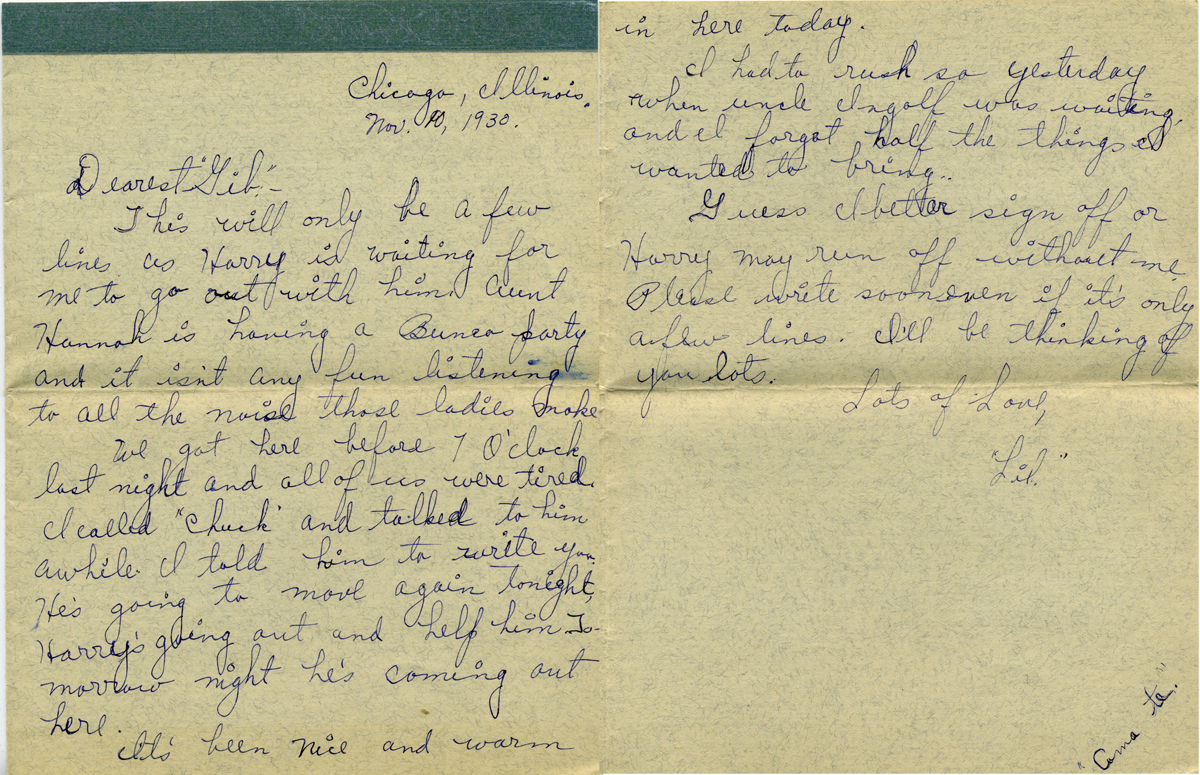 Chicago, Illinois.
Nov. 10, 1930.
Dearest "Gib":-
This will only be a few
lines as Harry is waiting for
me to go out with him. Aunt
Hannah is having a Bunco party
and it isn't any fun listening
to all the noise those ladies make
We got here before 7 O'clock
last night and all of us were tired.
I called "Chuck" and talked to him
awhile. I told him to write you.
He's going to move again tonight,
Harry's going out and help him. To-
morrow night he's coming out
here.
It's been nice and warm
in here today.
I had to rush so yesterday
when uncle Ingolf was waiting,
and I forgot half the things I
wanted to bring..
Guess I better sign off or
Harry may run off without me
Please write soon even if it's only
a few lines. I'll be thinking of
you lots.
Lots of Love,
"Lil."
"Coma te."